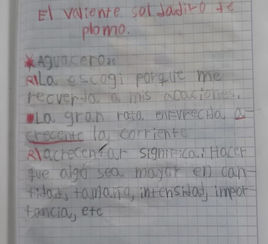 El valiente soldadito de
plomo.
*Aguacero:
R\La escogi porque me
recuerda a mis vacaciones.
•La gran rata enfurecida, a-
crecente la corriente
R\acrecentar significa: Hacer
que algo sea mayor en can-
tidad, tamaño, intensidad, impor
tancia, etc